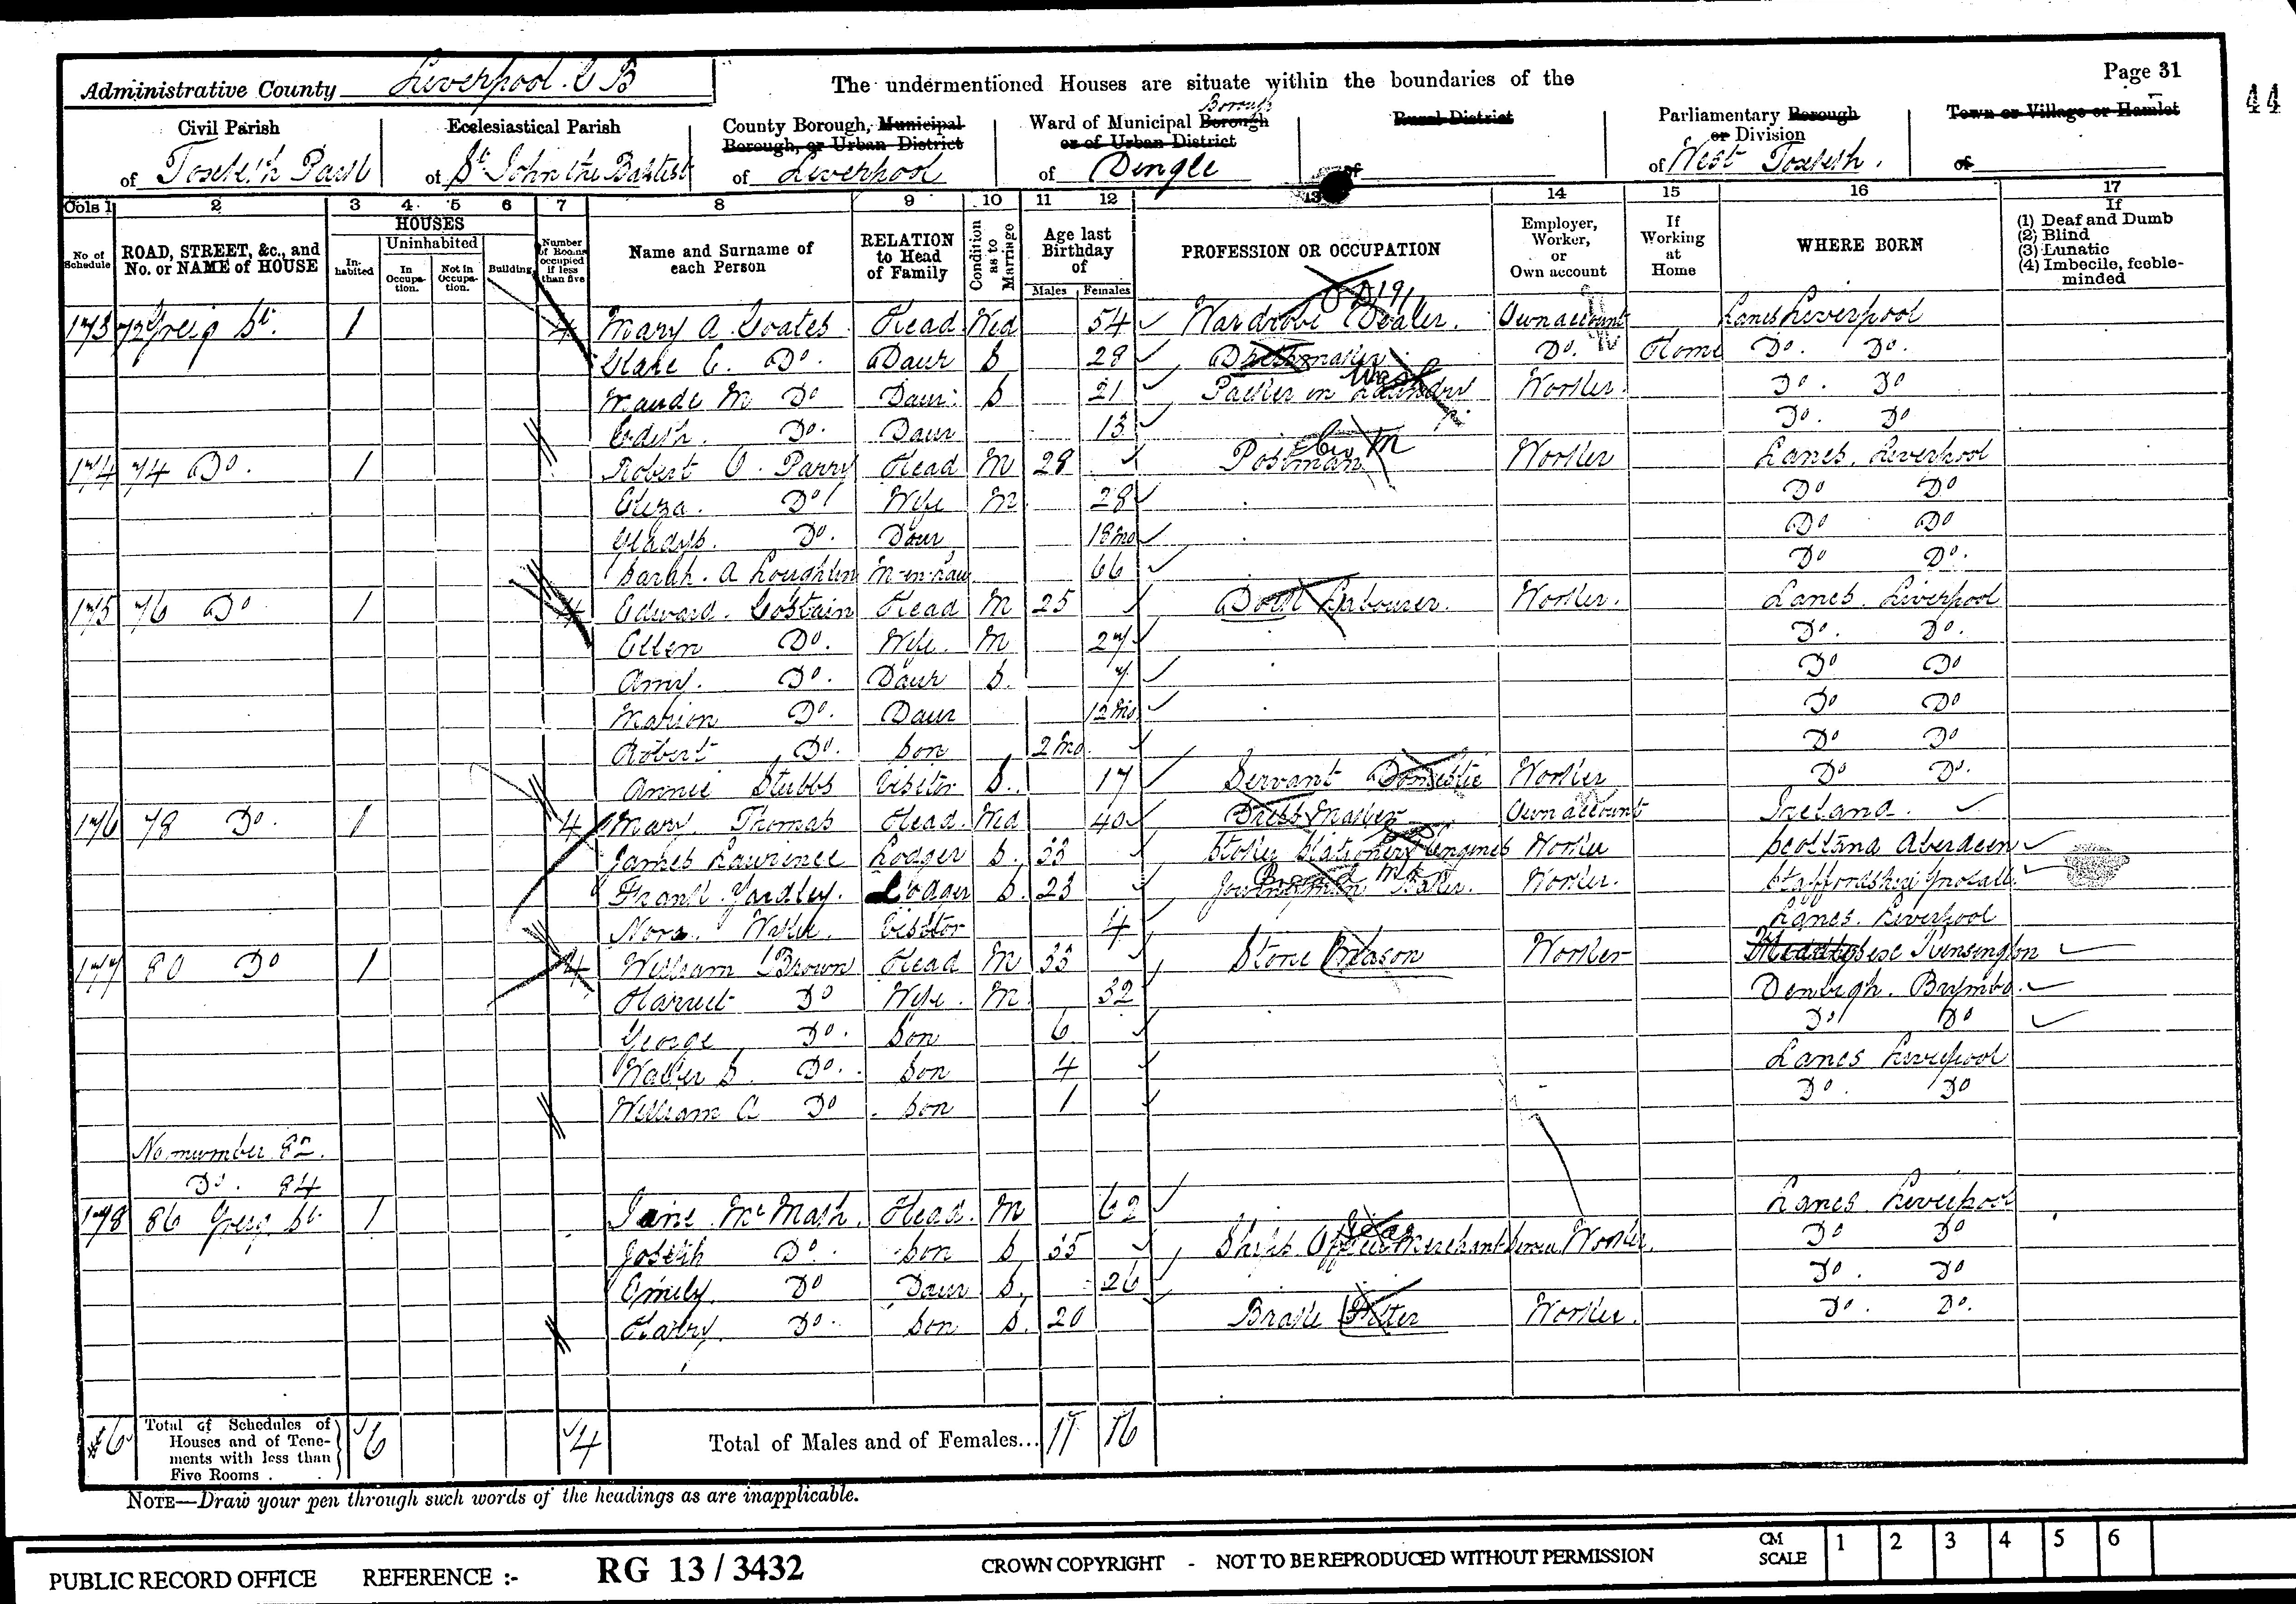 Page 31
44
Administrative County Liverpool C B
The undermentioned Houses are situate within the boundaries of the
Civil Parish of Toxteth Park
Ecclesiastical Parish of St John the Baptist
County Borough, Municipal Borough, or Urban District of Liverpool
Ward of Municipal Borough Borough or of Urban District of Dingle
Rural District of
Parliamentary Borough or Division of West Toxteth.
Town or Village or Hamlet of
Cols 1 2 3 4 5 6 7 8 9 10 11 12 13 14 15 16 17
No of Schedule
ROAD, STREET, &c., and No. or NAME of HOUSE
HOUSES
Inhabited
Uninhabited
In Occupation.
Not in Occupation.
Building
Number of Rooms occupied if less than five
Name and Surname of each Person
RELATION to Head of Family
Condition as to Marriage
Age last Birthday of
Males Females
PROFESSION OR OCCUPATION
Employer, Worker, or Own account
If Working at Home
WHERE BORN
If
(1) Deaf and Dumb
(2) Blind
(3) Lunatic
(4) Imbecile, feeble-minded
173 72 Greig St. 1 4 Mary A Coates Head Wid 54 Wardrobe Dealer. Own account Lancs Liverpool
C. Do. Daur S 28 Dressmaker Do. Home Do. Do.
Maude M Do Daur S 21 Packer in Laundry Worker. Do. Do
Edith. Do. Daur 13 Do. Do
174 74 Do. 1 Robert O. Parry Head M 28 Postman Worker Lancs. Liverpool
Eliza. Do Wife M 28 Do Do
Gladys. Do. Daur 18 mo Do Do
Sarah. A Loughlin M-in-Law 66 Do Do.
175 76 Do 1 4 Edward. Costain Head M 25 Dock Labourer. Worker. Lancs. Liverpool
Ellen Do. Wife. M 27 Do. Do.
Amy. Do. Daur S. 7 Do Do
Marion Do. Daur 12 Mo Do Do
Robert Do. Son 2 mo. Do Do
Annie Stubbs Visitor S. 17 Servant Domestic Worker Do Do.
176 78 Do. 1 4 Mary. Thomas Head. Wid 40 Dress Maker Own account Ireland.
James Lawrence Lodger S. 33 Stoker Stationery Engines Worker Scotland Aberdeen
Frank Yardley. Lodger S. 23 Journeyman Baker. Worker. Staffordshire
Nora. Visitor 4 Lancs. Liverpool
177 80 Do 1 4 William Brown Head M 33 Stone Mason Worker Middlesex Kensington
Harriet Do Wife. M. 32 Denbigh. Brymbo.
George Do. Son 6 Do Do
Walter S. Do. Son 4 Lancs Liverpool
William A Do Son 1 Do. Do
No number 82.
Do. 84
178 86 Greig St 1 Jane McMath. Head. M 62 Lancs. Liverpool
Joseph Do. Son S 35 Ships Officer Merchant Service Worker. Do Do
Emily. Do Daur S. 26 Do. Do
Harry. Do. Son S. 20 Brake Fitter Worker. Do. Do.
6 Total of Schedules of Houses and of Tenements with less than Five Rooms 6 4 Total of Males and of Females... 11 16
NOTE—Draw your pen through such words of the headings as are inapplicable.
PUBLIC RECORD OFFICE REFERENCE :- RG 13 / 3432 CROWN COPYRIGHT - NOT TO BE REPRODUCED WITHOUT PERMISSION
CM SCALE 1 2 3 4 5 6